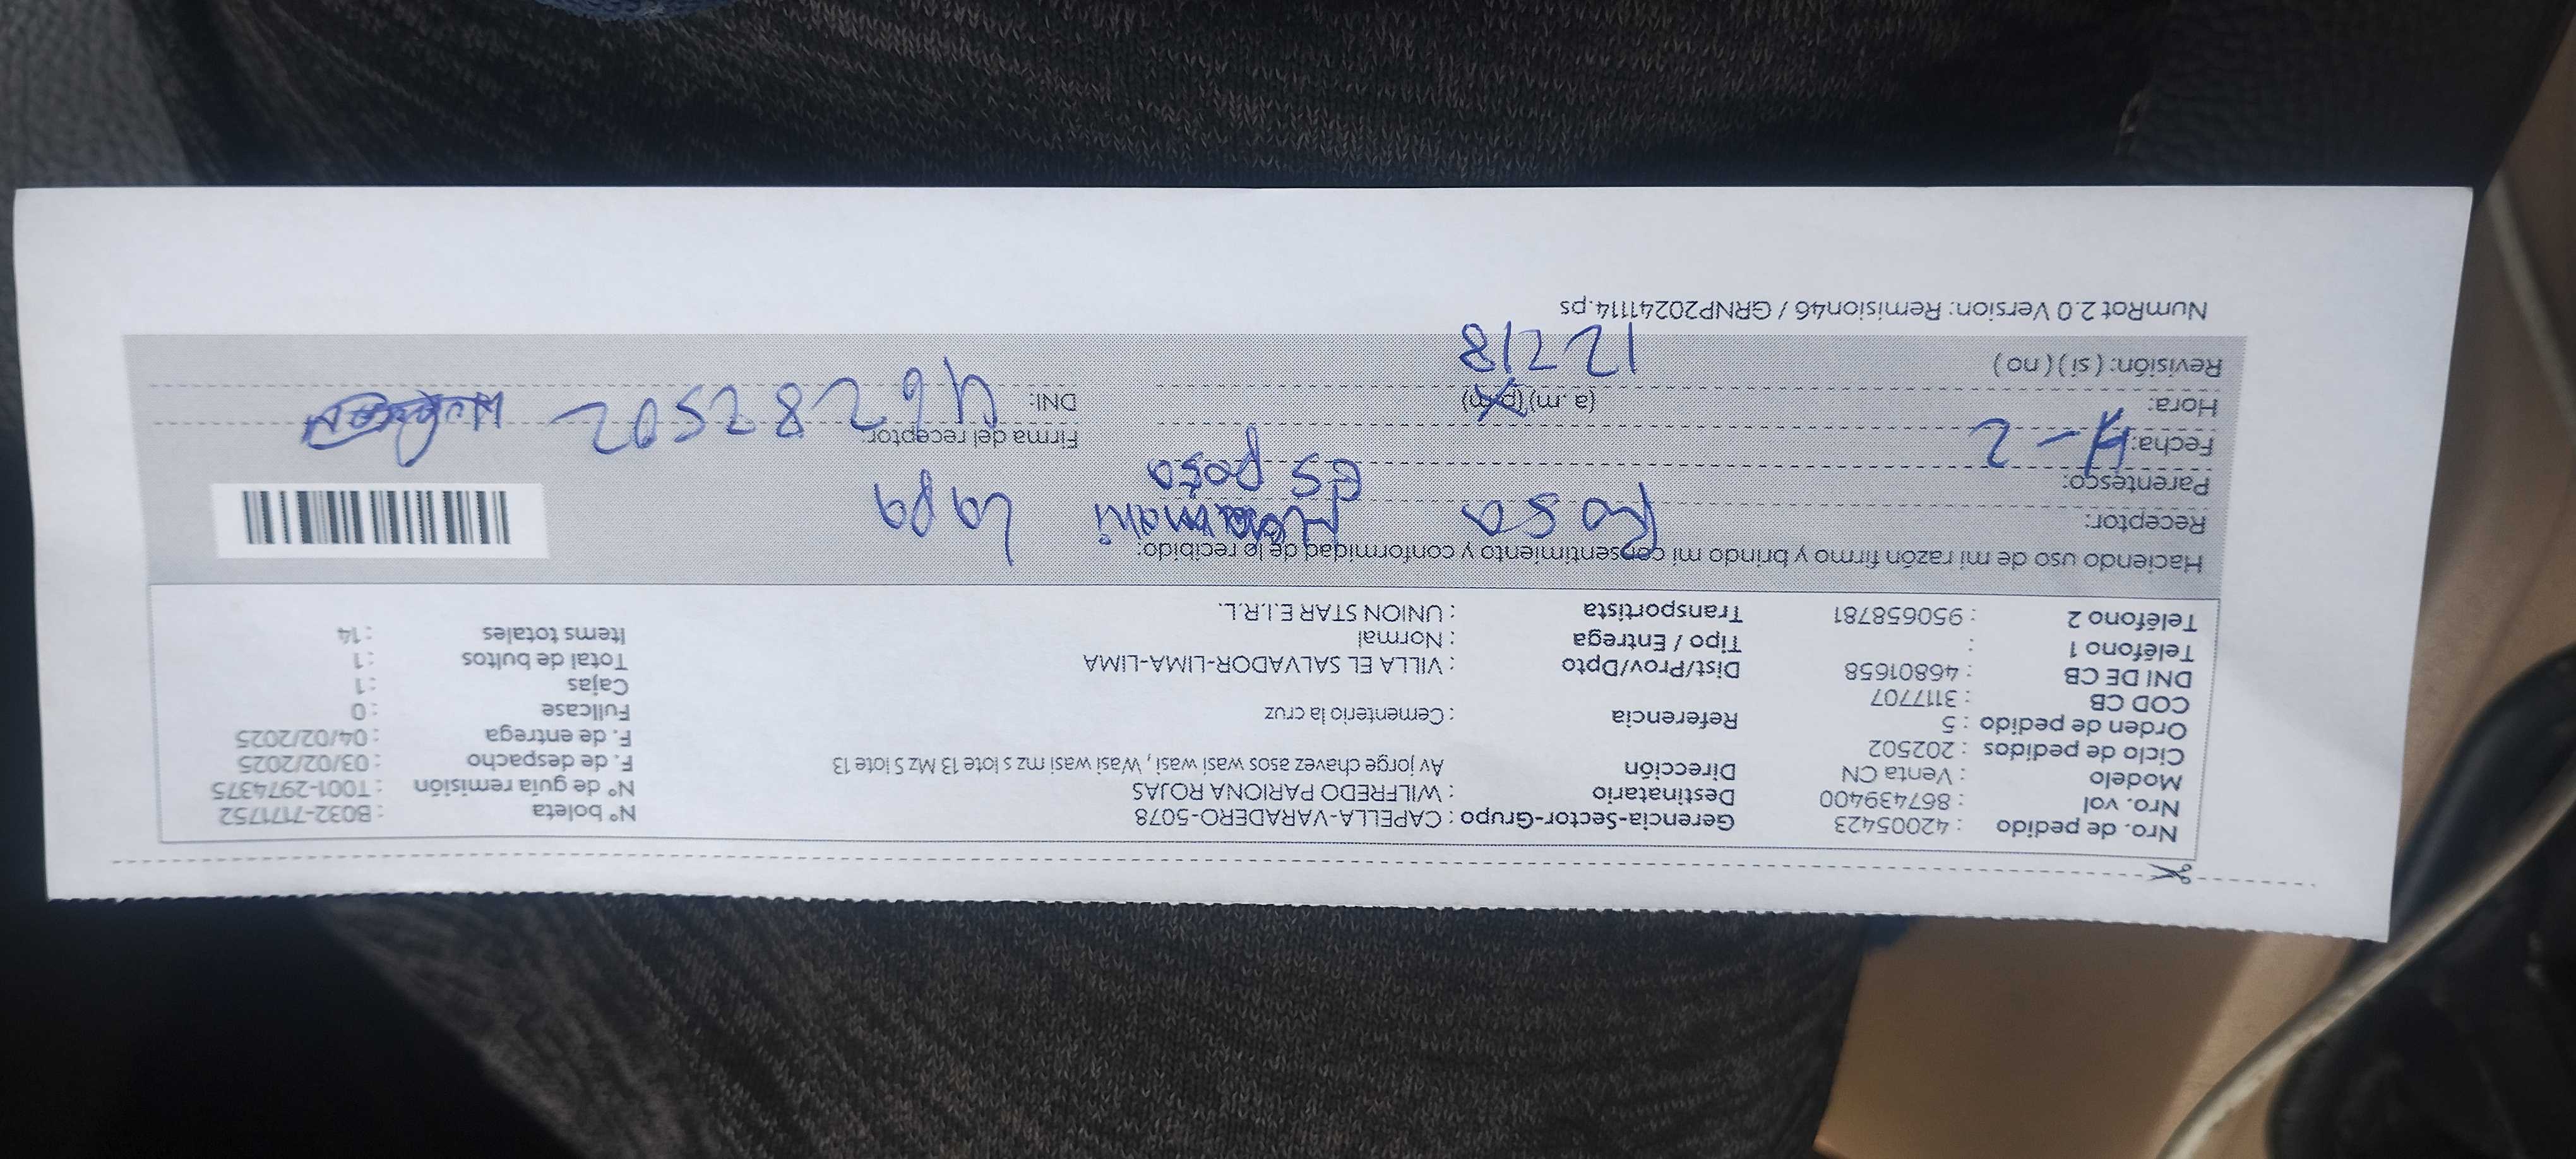 Nro. de pedido : 42005423 Gerencia-Sector-Grupo : CAPELLA-VARADERO-5078 N° boleta : B032-7171752
Nro. vol : 867439400 Destinatario : WILFREDO PARIONA ROJAS N° de guía remisión : T001-2974375
Modelo : Venta CN Dirección Av jorge chavez asos wasi wasi , Wasi wasi mz s lote 13 Mz S lote 13 F. de despacho : 03/02/2025
Ciclo de pedidos : 202502 F. de entrega : 04/02/2025
Orden de pedido : 5 Referencia : Cementerio la cruz Fullcase : 0
COD CB : 3117707 Cajas : 1
DNI DE CB : 46801658 Dist/Prov/Dpto : VILLA EL SALVADOR-LIMA-LIMA Total de bultos : 1
Teléfono 1 : Tipo / Entrega : Normal Items totales : 14
Teléfono 2 : 950658781 Transportista : UNION STAR E.I.R.L.
Haciendo uso de mi razón firmo y brindo mi consentimiento y conformidad de lo recibido:
Receptor: Rosa Lapa
Parentesco: esposa
Fecha: 4-2 Firma del receptor:
Hora: (a.m)(p.m) DNI: 46282502
Revisión: ( si ) ( no ) 12218
NumRot 2.0 Version: Remision46 / GRNP20241114.ps